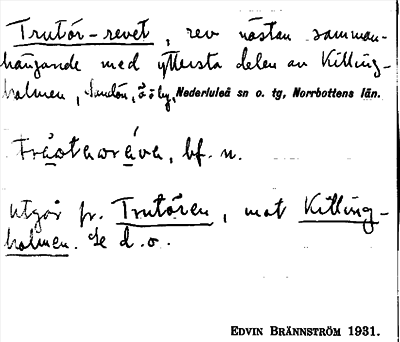 Trutör-revet, rev nästan samman-
hängande med yttersta delen av Killing-
holmen, Sundön, ö o by, Nederluleå sn o. tg, Norrbottens län.
bf. n.
utgår fr. Trutören, mot Killing-
holmen. Se d. o.
EDVIN BRÄNNSTRÖM 1931.